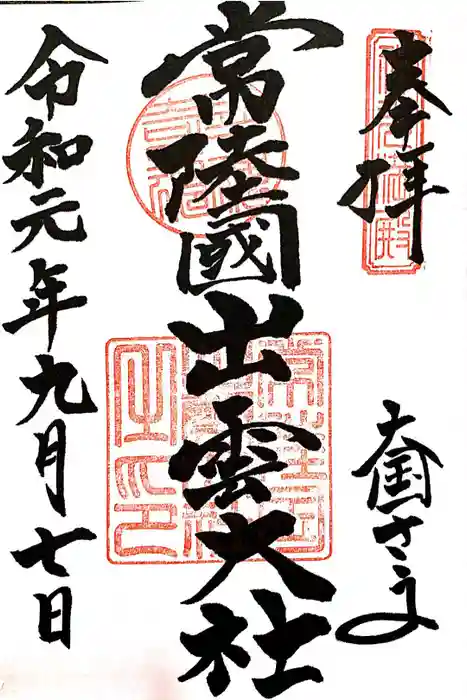 奉拝
大国さま
常陸國出雲大社
令和元年九月七日